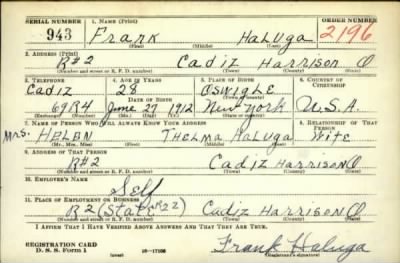 SERIAL NUMBER 1. NAME (Print) ORDER NUMBER
943 FRANK HALUGA 2196
(First) (Middle) (Last)
2. ADDRESS (Print)
R#2 Cadiz Harrison O
(Number and street or R. F. D. number) (Town) (County) (State)
3. TELEPHONE 4. AGE IN YEARS 5. PLACE OF BIRTH 6. COUNTRY OF CITIZENSHIP
Cadiz 28 Oswigle
DATE OF BIRTH (Town or county)
69R4 June 27 1912 New York U.S.A.
(Exchange) (Number) (Mo.) (Day) (Yr.) (State or country)
7. NAME OF PERSON WHO WILL ALWAYS KNOW YOUR ADDRESS 8. RELATIONSHIP OF THAT PERSON
Mrs. HELEN THELMA HALUGA Wife
(Mr., Mrs., Miss) (First) (Middle) (Last)
9. ADDRESS OF THAT PERSON
R#2 Cadiz Harrison O
(Number and street or R. F. D. number) (Town) (County) (State)
10. EMPLOYER'S NAME
Self
11. PLACE OF EMPLOYMENT OR BUSINESS
R2 (State R22) Cadiz Harrison O
(Number and street or R. F. D. number) (Town) (County) (State)
I AFFIRM THAT I HAVE VERIFIED ABOVE ANSWERS AND THAT THEY ARE TRUE.
REGISTRATION CARD
D. S. S. Form 1 (over) Frank Haluga
(Registrant's signature)